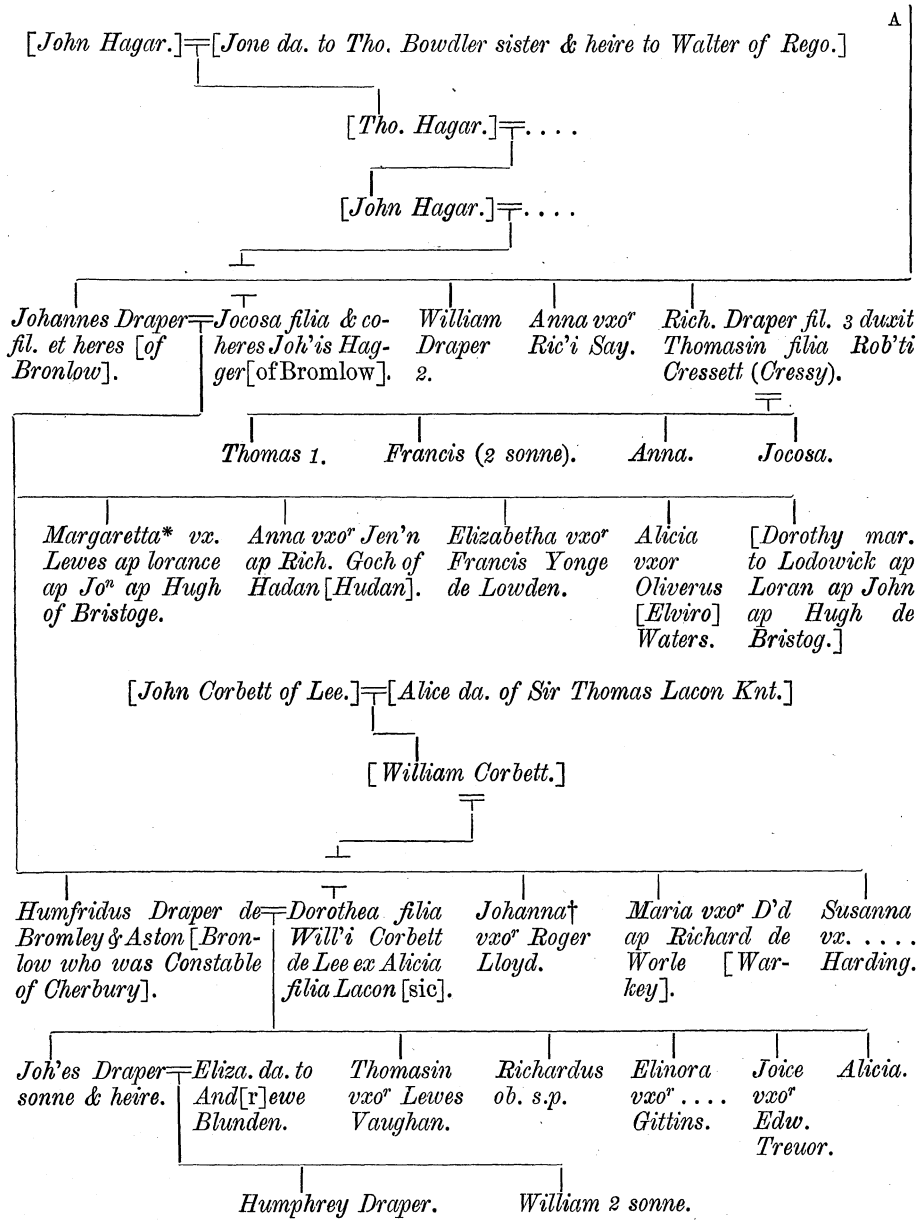 A
[John Hagar.] [Jone da. to Tho. Bowdler sister & heire to Walter of Rego.]
[Tho. Hagar.] . . . .
[John Hagar.] . . . .
Johannes Draper
fil. et heres [of
Bronlow].
Jocosa filia & co-
heres Joh'is Hag-
ger [of Bromlow].
William
Draper
2.
Anna vxoʳ
Ric'i Say.
Rich. Draper fil. 3 duxit
Thomasin filia Rob'ti
Cressett (Cressy).
Thomas 1.
Francis (2 sonne).
Anna.
Jocosa.
Margaretta* vx.
Lewes ap lorance
ap Joⁿ ap Hugh
of Bristoge.
Anna vxoʳ Jen'n
ap Rich. Goch of
Hadan [Hudan].
Elizabetha vxoʳ
Francis Yonge
de Lowden.
Alicia
vxor
Oliverus
[Elviro]
Waters.
[Dorothy mar.
to Lodowick ap
Loran ap John
ap Hugh de
Bristog.]
[John Corbett of Lee.] [Alice da. of Sir Thomas Lacon Knt.]
[William Corbett.]
Humfridus Draper de
Bromley & Aston [Bron-
low who was Constable
of Cherbury].
Dorothea filia
Will'i Corbett
de Lee ex Alicia
filia Lacon [sic].
Johanna†
vxoʳ Roger
Lloyd.
Maria vxoʳ D'd
ap Richard de
Worle [War-
key].
Susanna
vx. . . . .
Harding.
Joh'es Draper
sonne & heire.
Eliza. da. to
And[r]ewe
Blunden.
Thomasin
vxoʳ Lewes
Vaughan.
Richardus
ob. s.p.
Elinora
vxoʳ . . . .
Gittins.
Joice
vxoʳ
Edw.
Treuor.
Alicia.
Humphrey Draper.
William 2 sonne.